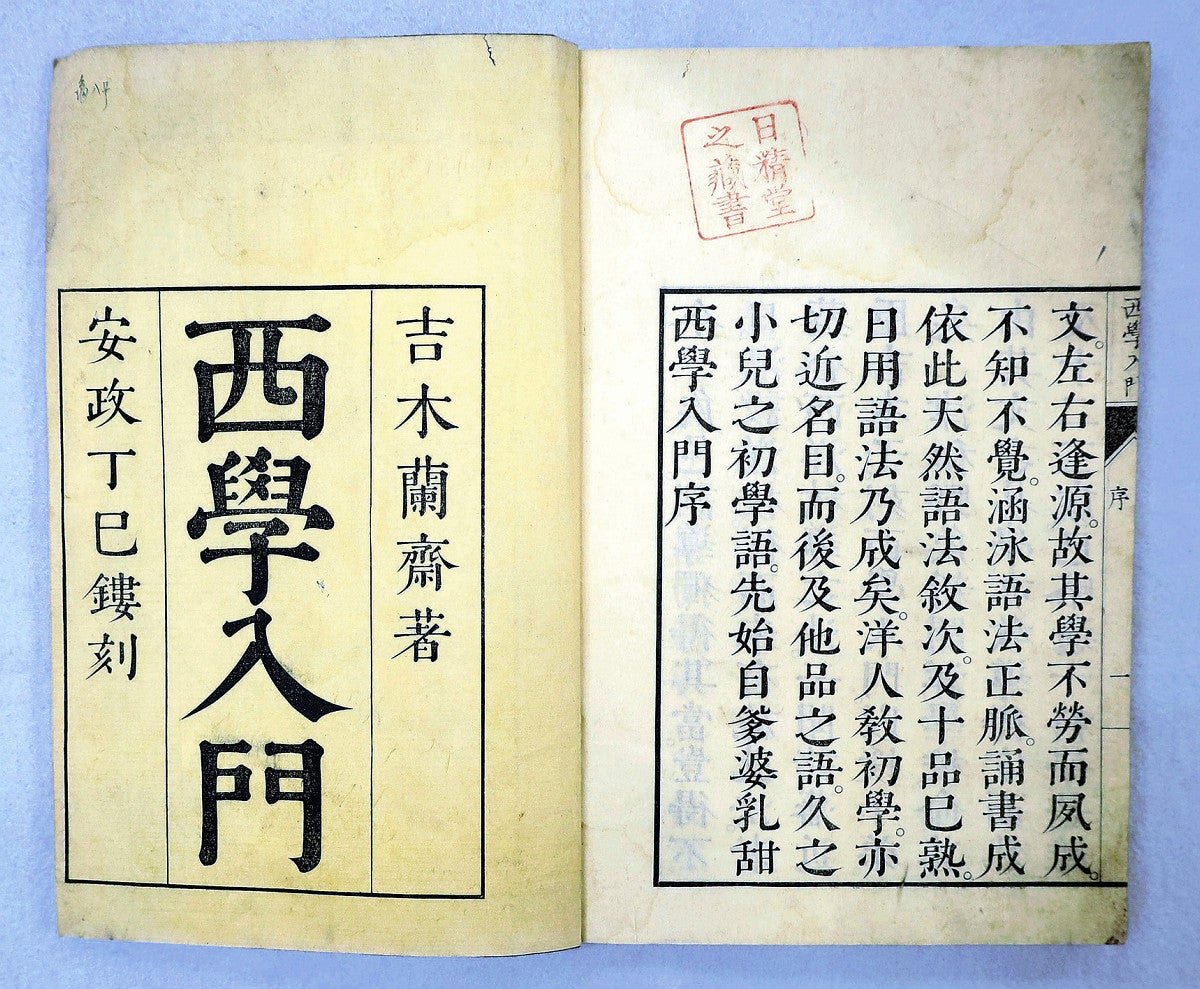 吉木蘭齋著
西學入門
安政丁巳鏤刻
日精堂
之藏書
西學入門序
小兒之初學語。先始自爹婆乳甜
切近名目。而後及他品之語。久之
日用語法乃成矣。洋人敎初學。亦
依此天然語法敘次。及十品已熟。
不知不覺。涵泳語法正脈。誦書成
文。左右逢源。故其學不勞而夙成。
西學入門
序
一